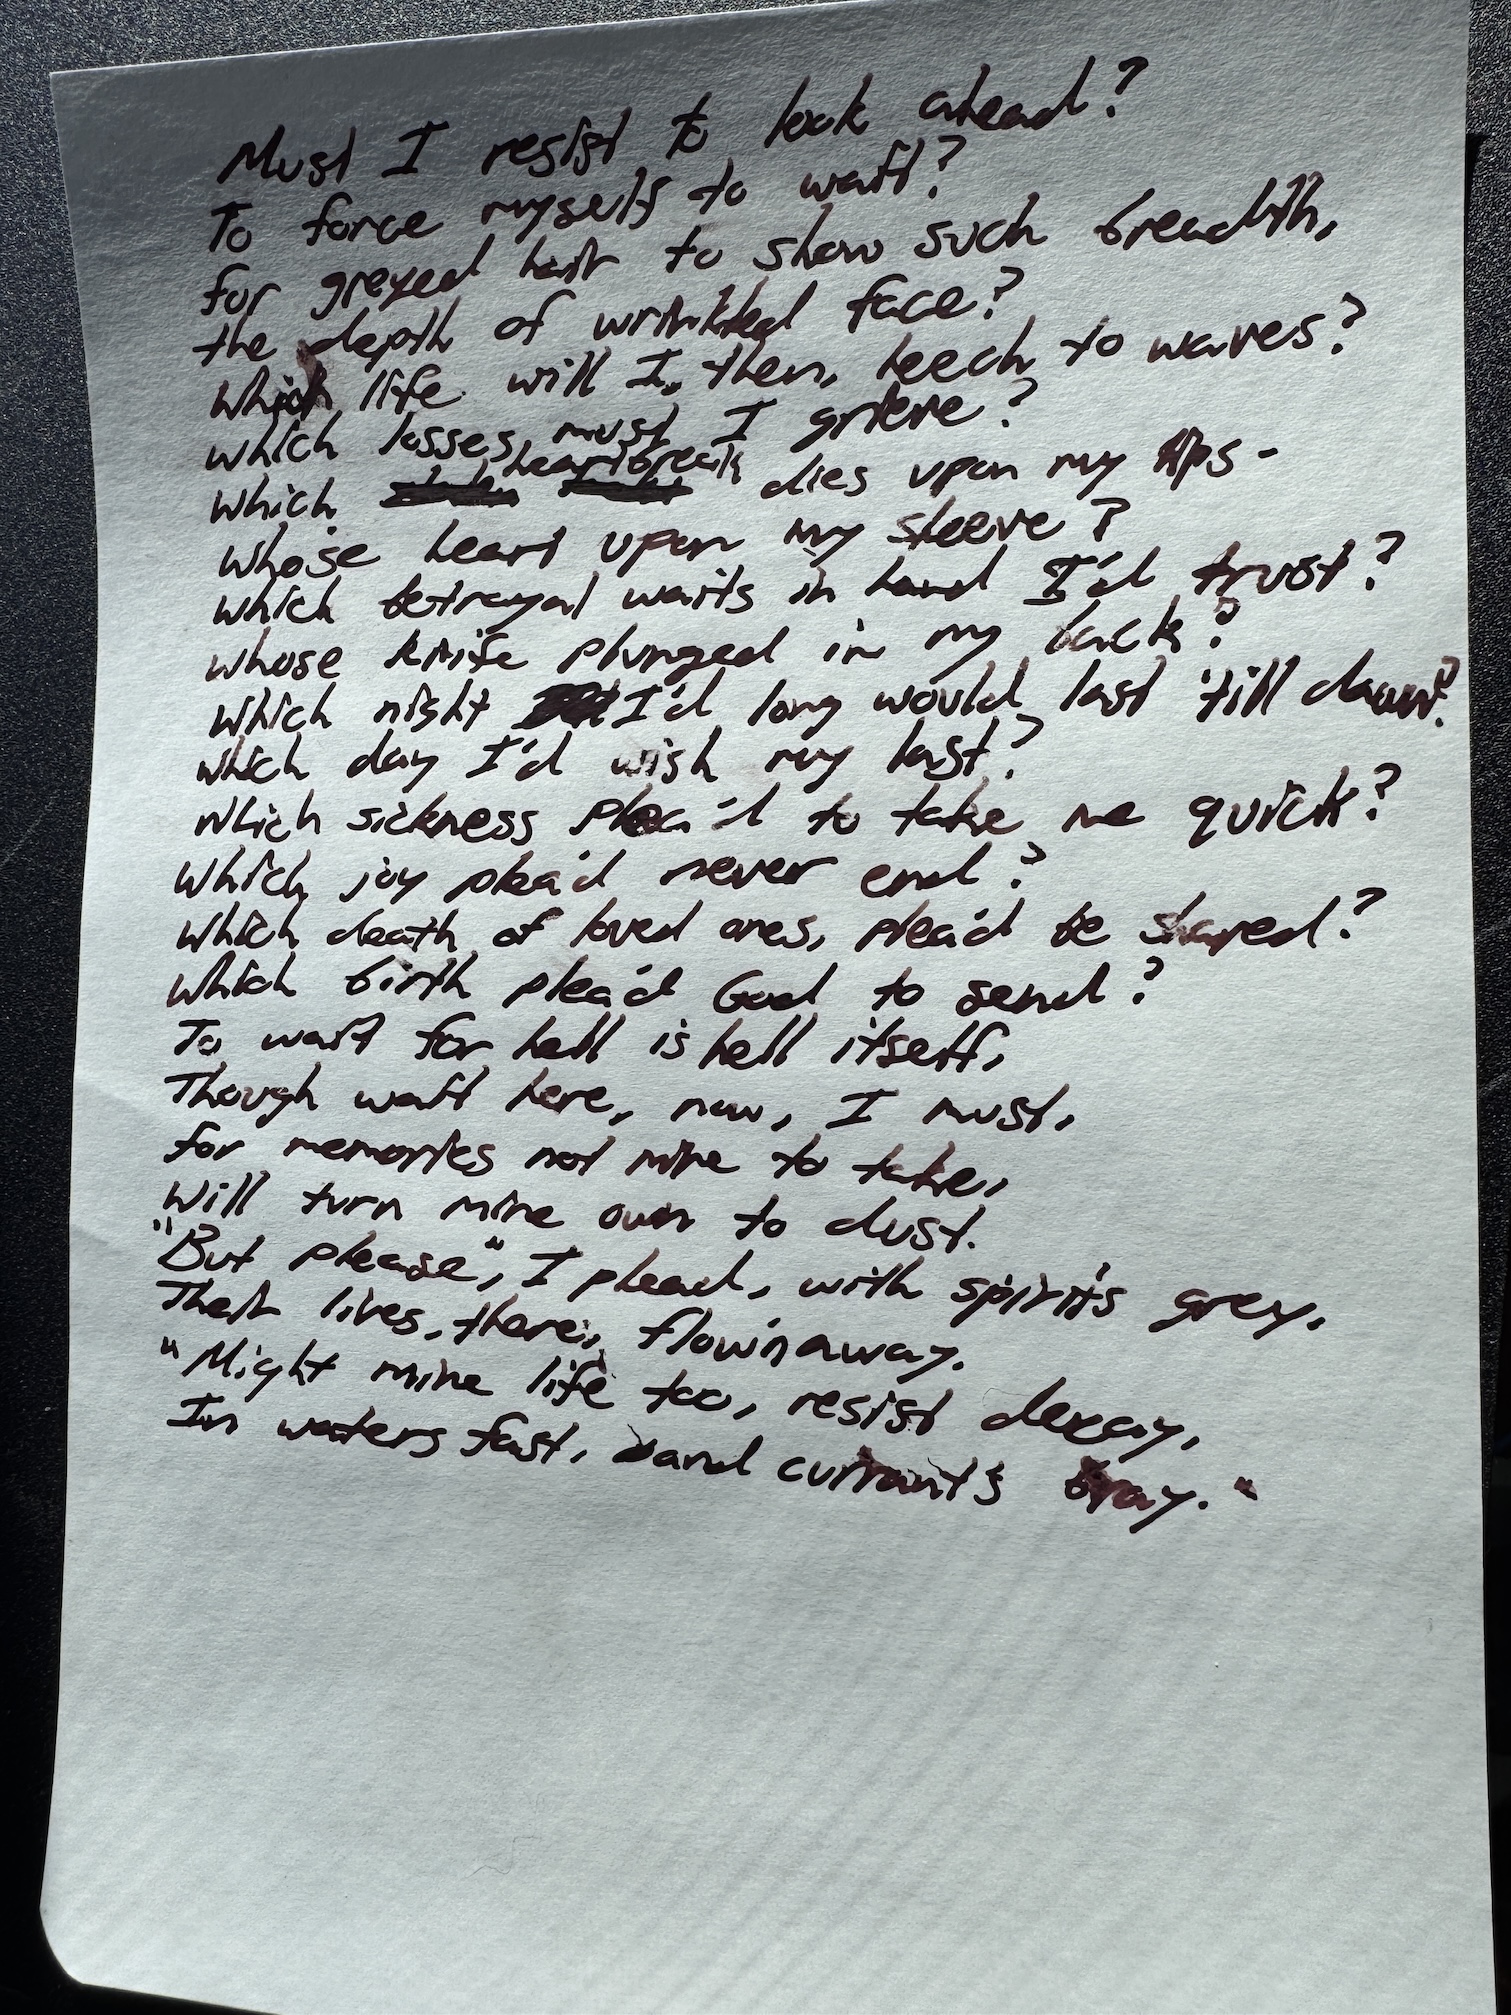 Must I resist to look ahead?
To force myself to wait?
for greyed hair to show such breadth,
the depth of wrinkled face?
Which life will I, then, leech to waves?
which losses, must I grieve?
Which heartbreak dies upon my lips-
Whose heart upon my sleeve?
which betrayal waits in hand I'd trust?
whose knife plunged in my back?
Which night I'd long would last 'till dawn?
which day I'd wish my last?
which sickness plea'd to take me quick?
Which joy plea'd never end?
Which death of loved ones, plea'd be shared?
Which birth plea'd God to send?
To wait for hell is hell itself,
Though wait here, now, I must,
for memories not mine to take,
Will turn mine own to dust.
"But please", I plead, with spirits grey,
Their lives, there, flow'n away.
"Might mine life too, resist decay,
In waters fast, and currants bray."